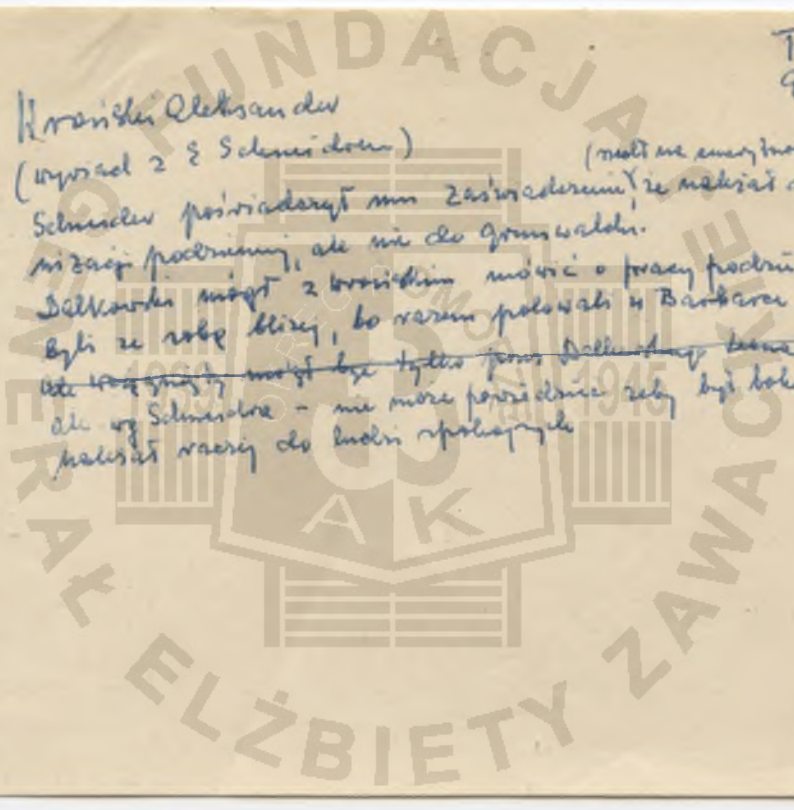 T
Kroński Aleksander
(wywiad z E Schneidrem)
(miał na emeryturę
Schneider poświadczył mu zaświadczenie, że należał d
nizacji podziemnej, ale nie do Grunwaldu.
Dałkowski mógł z Krońskim mówić o pracy podzie
byli ze sobą bliżej, bo razem polowali w Barbarce
ale wciągnięty mógł być tylko przez Dałkowskiego
ale wg Schneidra – nie może powiedzieć żeby był boh
należał raczej do ludzi spokojnych
FUNDACJA
GENERAŁ ELŻBIETY ZAWACKIEJ
OKRĘG POMORZE
1939 1945
AK